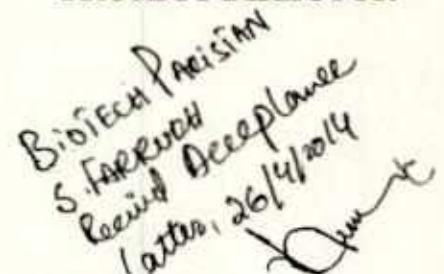 BIOTECH PAKISTAN
S. FARRUCH
Received Acceplance
Latter, 26/4/2014